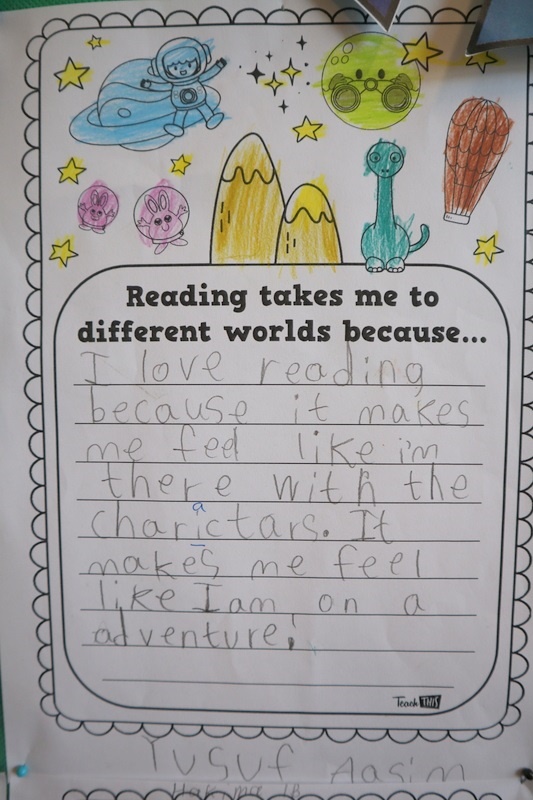 Reading takes me to
different worlds because...
I love reading
because it makes
me feel like i'm
there with the
a
charictars. It
makes me feel
like I am on a
adventure!
Teach THIS
Yusuf Aasim